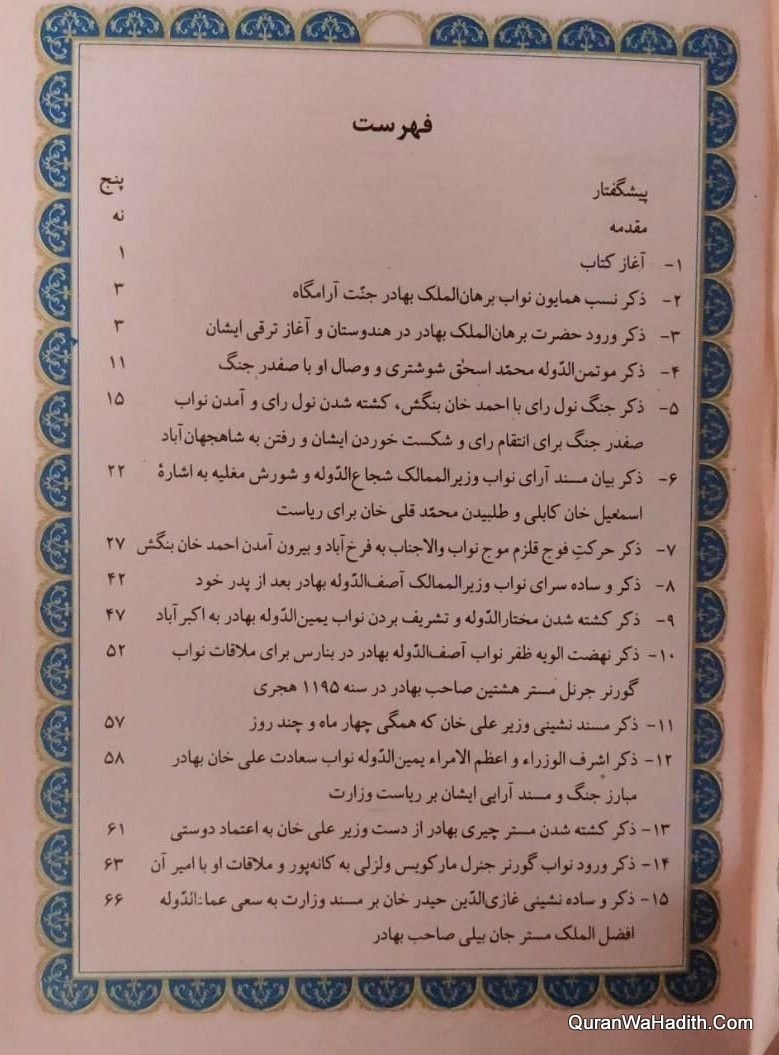 فهرست
پیشگفتار پنج
مقدمه نه
۱- آغاز کتاب ۱
۲- ذکر نسب همایون نواب برهان‌الملک بهادر جنّت آرامگاه ۳
۳- ذکر ورود حضرت برهان‌الملک بهادر در هندوستان و آغاز ترقی ایشان ۳
۴- ذکر موتمن‌الدّوله محمّد اسحٰق شوشتری و وصال او با صفدر جنگ ۱۱
۵- ذکر جنگ نول رای با احمد خان بنگش، کشته شدن نول رای و آمدن نواب ۱۵
صفدر جنگ برای انتقام رای و شکست خوردن ایشان و رفتن به شاهجهان‌آباد
۶- ذکر بیان مسند آرای نواب وزیرالممالک شجاع‌الدّوله و شورش مغلیه به اشارهٔ ۲۲
اسمعیل خان کابلی و طلبیدن محمّد قلی خان برای ریاست
۷- ذکر حرکتِ فوج قلزم موج نواب والاجناب به فرخ‌آباد و بیرون آمدن احمد خان بنگش ۲۷
۸- ذکر و ساده سرای نواب وزیرالممالک آصف‌الدّوله بهادر بعد از پدر خود ۴۲
۹- ذکر کشته شدن مختارالدّوله و تشریف بردن نواب یمین‌الدّوله بهادر به اکبر آباد ۴۷
۱۰- ذکر نهضت الویه ظفر نواب آصف‌الدّوله بهادر در بنارس برای ملاقات نواب ۵۲
گورنر جرنل مستر هشتین صاحب بهادر در سنه ۱۱۹۵ هجری
۱۱- ذکر مسند نشینی وزیر علی خان که همگی چهار ماه و چند روز ۵۷
۱۲- ذکر اشرف الوزراء و اعظم الامراء یمین‌الدّوله نواب سعادت علی خان بهادر ۵۸
مبارز جنگ و مسند آرایی ایشان بر ریاست وزارت
۱۳- ذکر کشته شدن مستر چیری بهادر از دست وزیر علی خان به اعتماد دوستی ۶۱
۱۴- ذکر ورود نواب گورنر جنرل مارکویس ولزلی به کانه‌پور و ملاقات او با امیر آن ۶۳
۱۵- ذکر و ساده نشینی غازی‌الدّین حیدر خان بر مسند وزارت به سعی عمادالدّوله ۶۶
افضل الملک مستر جان بیلی صاحب بهادر
QuranWaHadith.Com